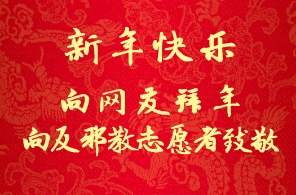 新年快乐
向网友拜年
向反邪教志愿者致敬